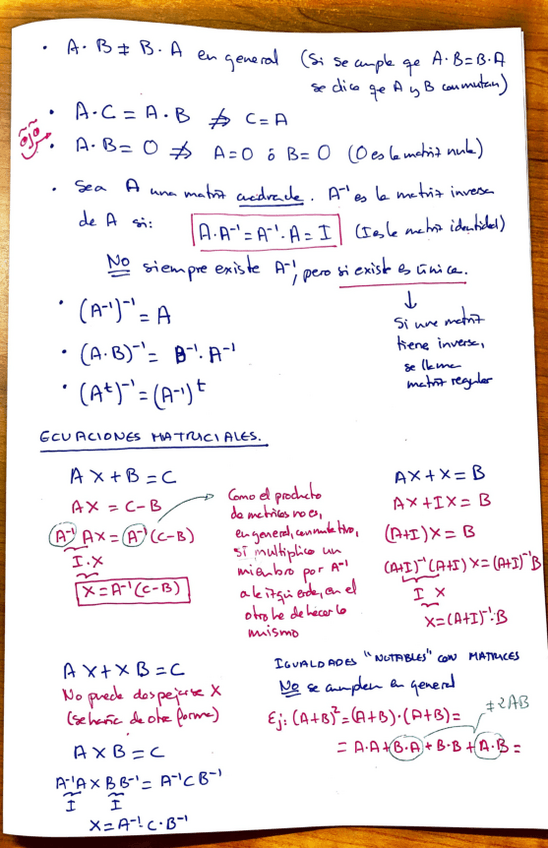 · A·B ≠ B·A en general (Si se cumple que A·B=B·A
se dice que A y B conmutan)
ojo
· A·C = A·B ⇏ C=A
· A·B = O ⇏ A=O ó B=O (O es la matriz nula)
· Sea A una matriz cuadrada. A⁻¹ es la matriz inversa
de A si: A·A⁻¹=A⁻¹·A=I (I es la matriz identidad)
No siempre existe A⁻¹, pero si existe es única.
↓
Si una matriz
tiene inversa,
se llama
matriz regular
· (A⁻¹)⁻¹=A
· (A·B)⁻¹= B⁻¹·A⁻¹
· (Aᵗ)⁻¹=(A⁻¹)ᵗ
ECUACIONES MATRICIALES.
AX+B=C
AX = C-B
A⁻¹AX=A⁻¹(C-B)
I·X
X=A⁻¹(C-B)
Como el producto
de matrices no es,
en general, conmutativo,
si multiplico un
miembro por A⁻¹
a la izquierda, en el
otro he de hacer lo
mismo
AX+X=B
AX+IX=B
(A+I)X=B
(A+I)⁻¹(A+I)X=(A+I)⁻¹B
I X
X=(A+I)⁻¹·B
AX+XB=C
No puede despejarse X
(se haría de otra forma)
AXB=C
A⁻¹AXBB⁻¹=A⁻¹CB⁻¹
I I
X=A⁻¹·C·B⁻¹
IGUALDADES "NOTABLES" CON MATRICES
No se cumplen en general
Ej: (A+B)²=(A+B)·(A+B)=
≠2AB
=A·A+B·A+B·B+A·B=